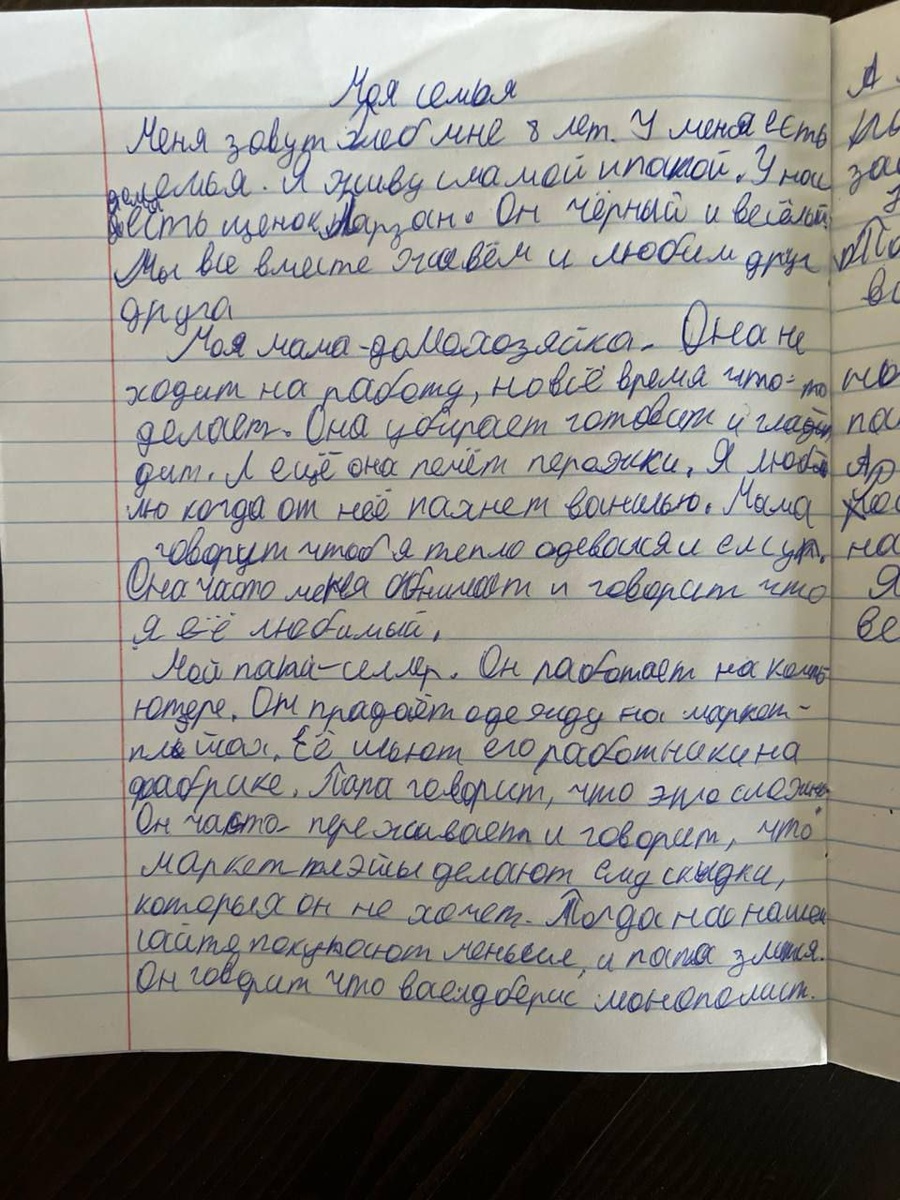 Моя семья
Меня зовут Глеб мне 8 лет. У меня есть
семья. Я живу с мамой и папой. У нас
есть щенок Тарзан. Он чёрный и весёлый.
Мы все вместе живём и любим друг
друга
Моя мама-домохозяйка. Она не
ходит на работу, но всё время что-то
делает. Она убирает готовит и гла
дит. А ещё она печёт пирожки. Я люб
лю когда от неё пахнет ванилью. Мама
говорит чтоб я тепло одевался и ел суп.
Она часто меня обнимает и говорит что
я её любимый.
Мой папа-селлер. Он работает на компь
ютере. Он прадаёт одежду на маркет-
плэйсах. Её шьют его работники на
фабрике. Папа говорит, что это сложно
Он часто переживает и говорит, что
маркетплэйсы делают ему скидки,
которых он не хочет. Тогда на нашем
сайте покупают меньше, и папа злится.
Он говорит что ваелдберис монополист.
А
за
По
вс
но
па
Ар
на
Я
ве